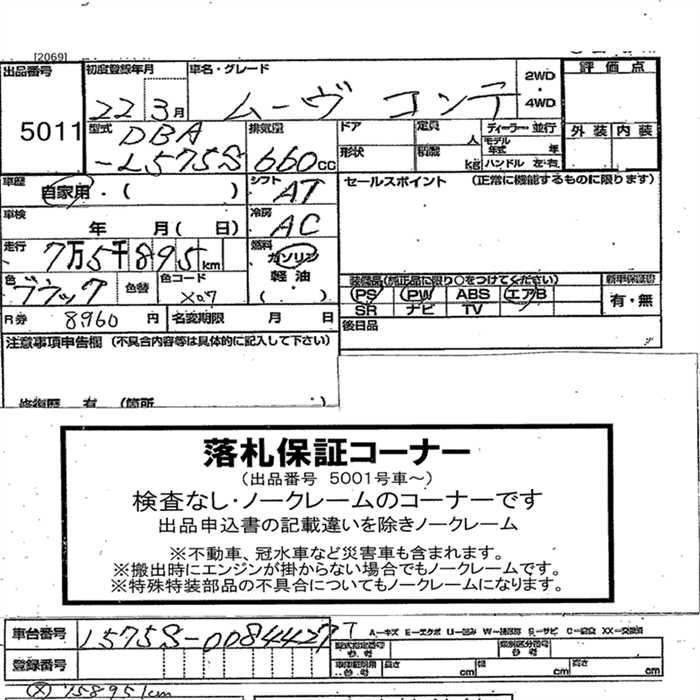 [2069]
出品番号 初度登録年月 車名・グレード 2WD 評価点
5011 22 3月 ムーヴ コンテ ・ 4WD
型式 DBA 排気量 ドア 定員 人 ディーラー・並行 外装 内装
-L575S 660cc 形状 積載 kg モデル年式 年
ハンドル 左・右
車歴 自家用・( ) シフト AT セールスポイント (正常に機能するものに限ります)
車検 年 月( 日) 冷房 AC
走行 7万5千895km 燃料 ガソリン
色 ブラック 色替 色コード X07 軽油
( ・ )
装備品(純正品に限り○をつけてください) 新車保証書
PS PW ABS エアB 有・無
SR ナビ TV
R券 8960円 名変期限 月 日 後日品
注意事項申告欄 (不具合内容等は具体的に記入して下さい)
修復歴 有 (箇所 )
落札保証コーナー
(出品番号 5001号車~)
検査なし・ノークレームのコーナーです
出品申込書の記載違いを除きノークレーム
※不動車、冠水車など災害車も含まれます。
※搬出時にエンジンが掛からない場合でもノークレームです。
※特殊特装部品の不具合についてもノークレームになります。
車台番号 L575S-0084427
登録番号 長さ cm 幅 cm 高さ cm
75895km